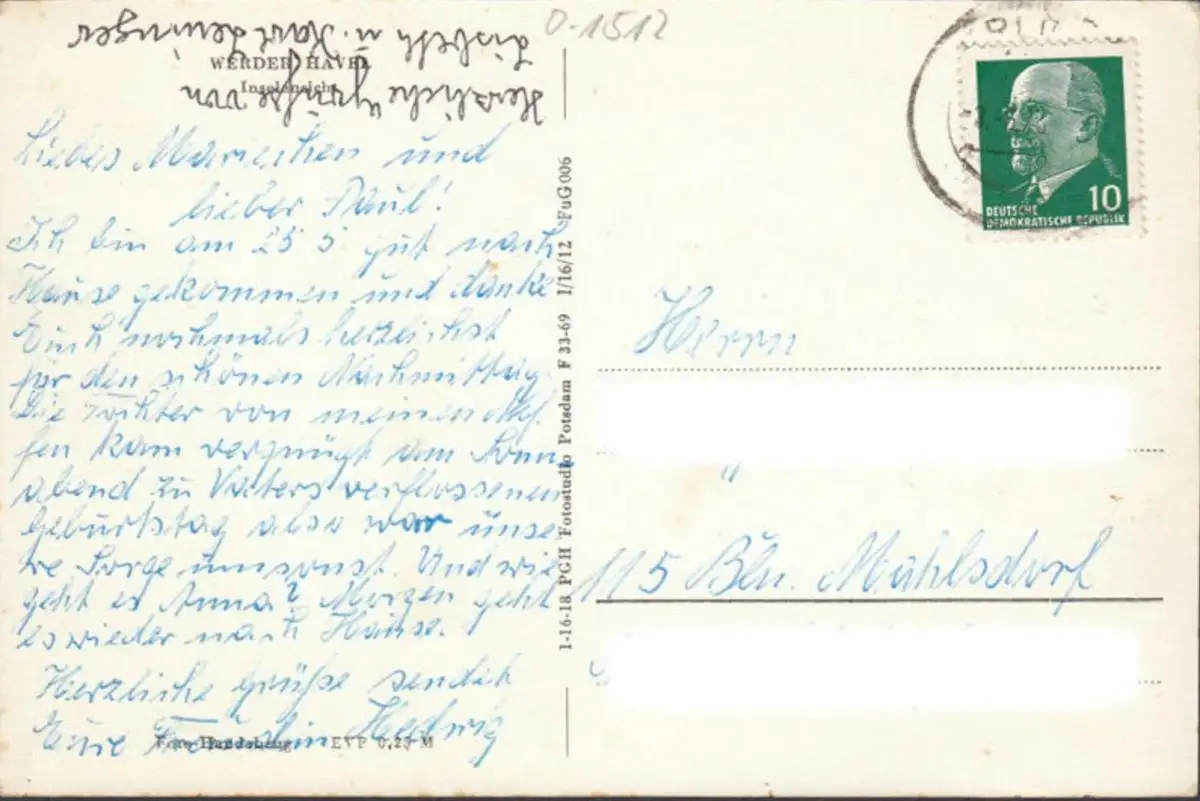 O-1512
WERDER/HAVEL
Inselansicht
Herzliche Grüße von
Lisbeth u. Karl
Liebes Mariechen und
lieber Paul!
Ich bin am 25 5 gut nach
Hause gekommen und danke
Euch nochmals herzlichst
für den schönen Nachmittag.
Die Tochter von meinen Nef-
fen kam vergnügt am Sonn-
abend zu Vaters verflossenen
Geburtstag also war unse-
re Sorge umsonst. Und wie
geht es Anna? Morgen geht
es wieder nach Hause.
Herzliche Grüße sendet
Eure Freundin Hedwig
Foto: EVP 0,25 M
1-16-18 PGH Fotostudio Potsdam F 33-69 I/16/12 FuG 006
10
DEUTSCHE
DEMOKRATISCHE REPUBLIK
Herrn
115 Bln. Mahlsdorf